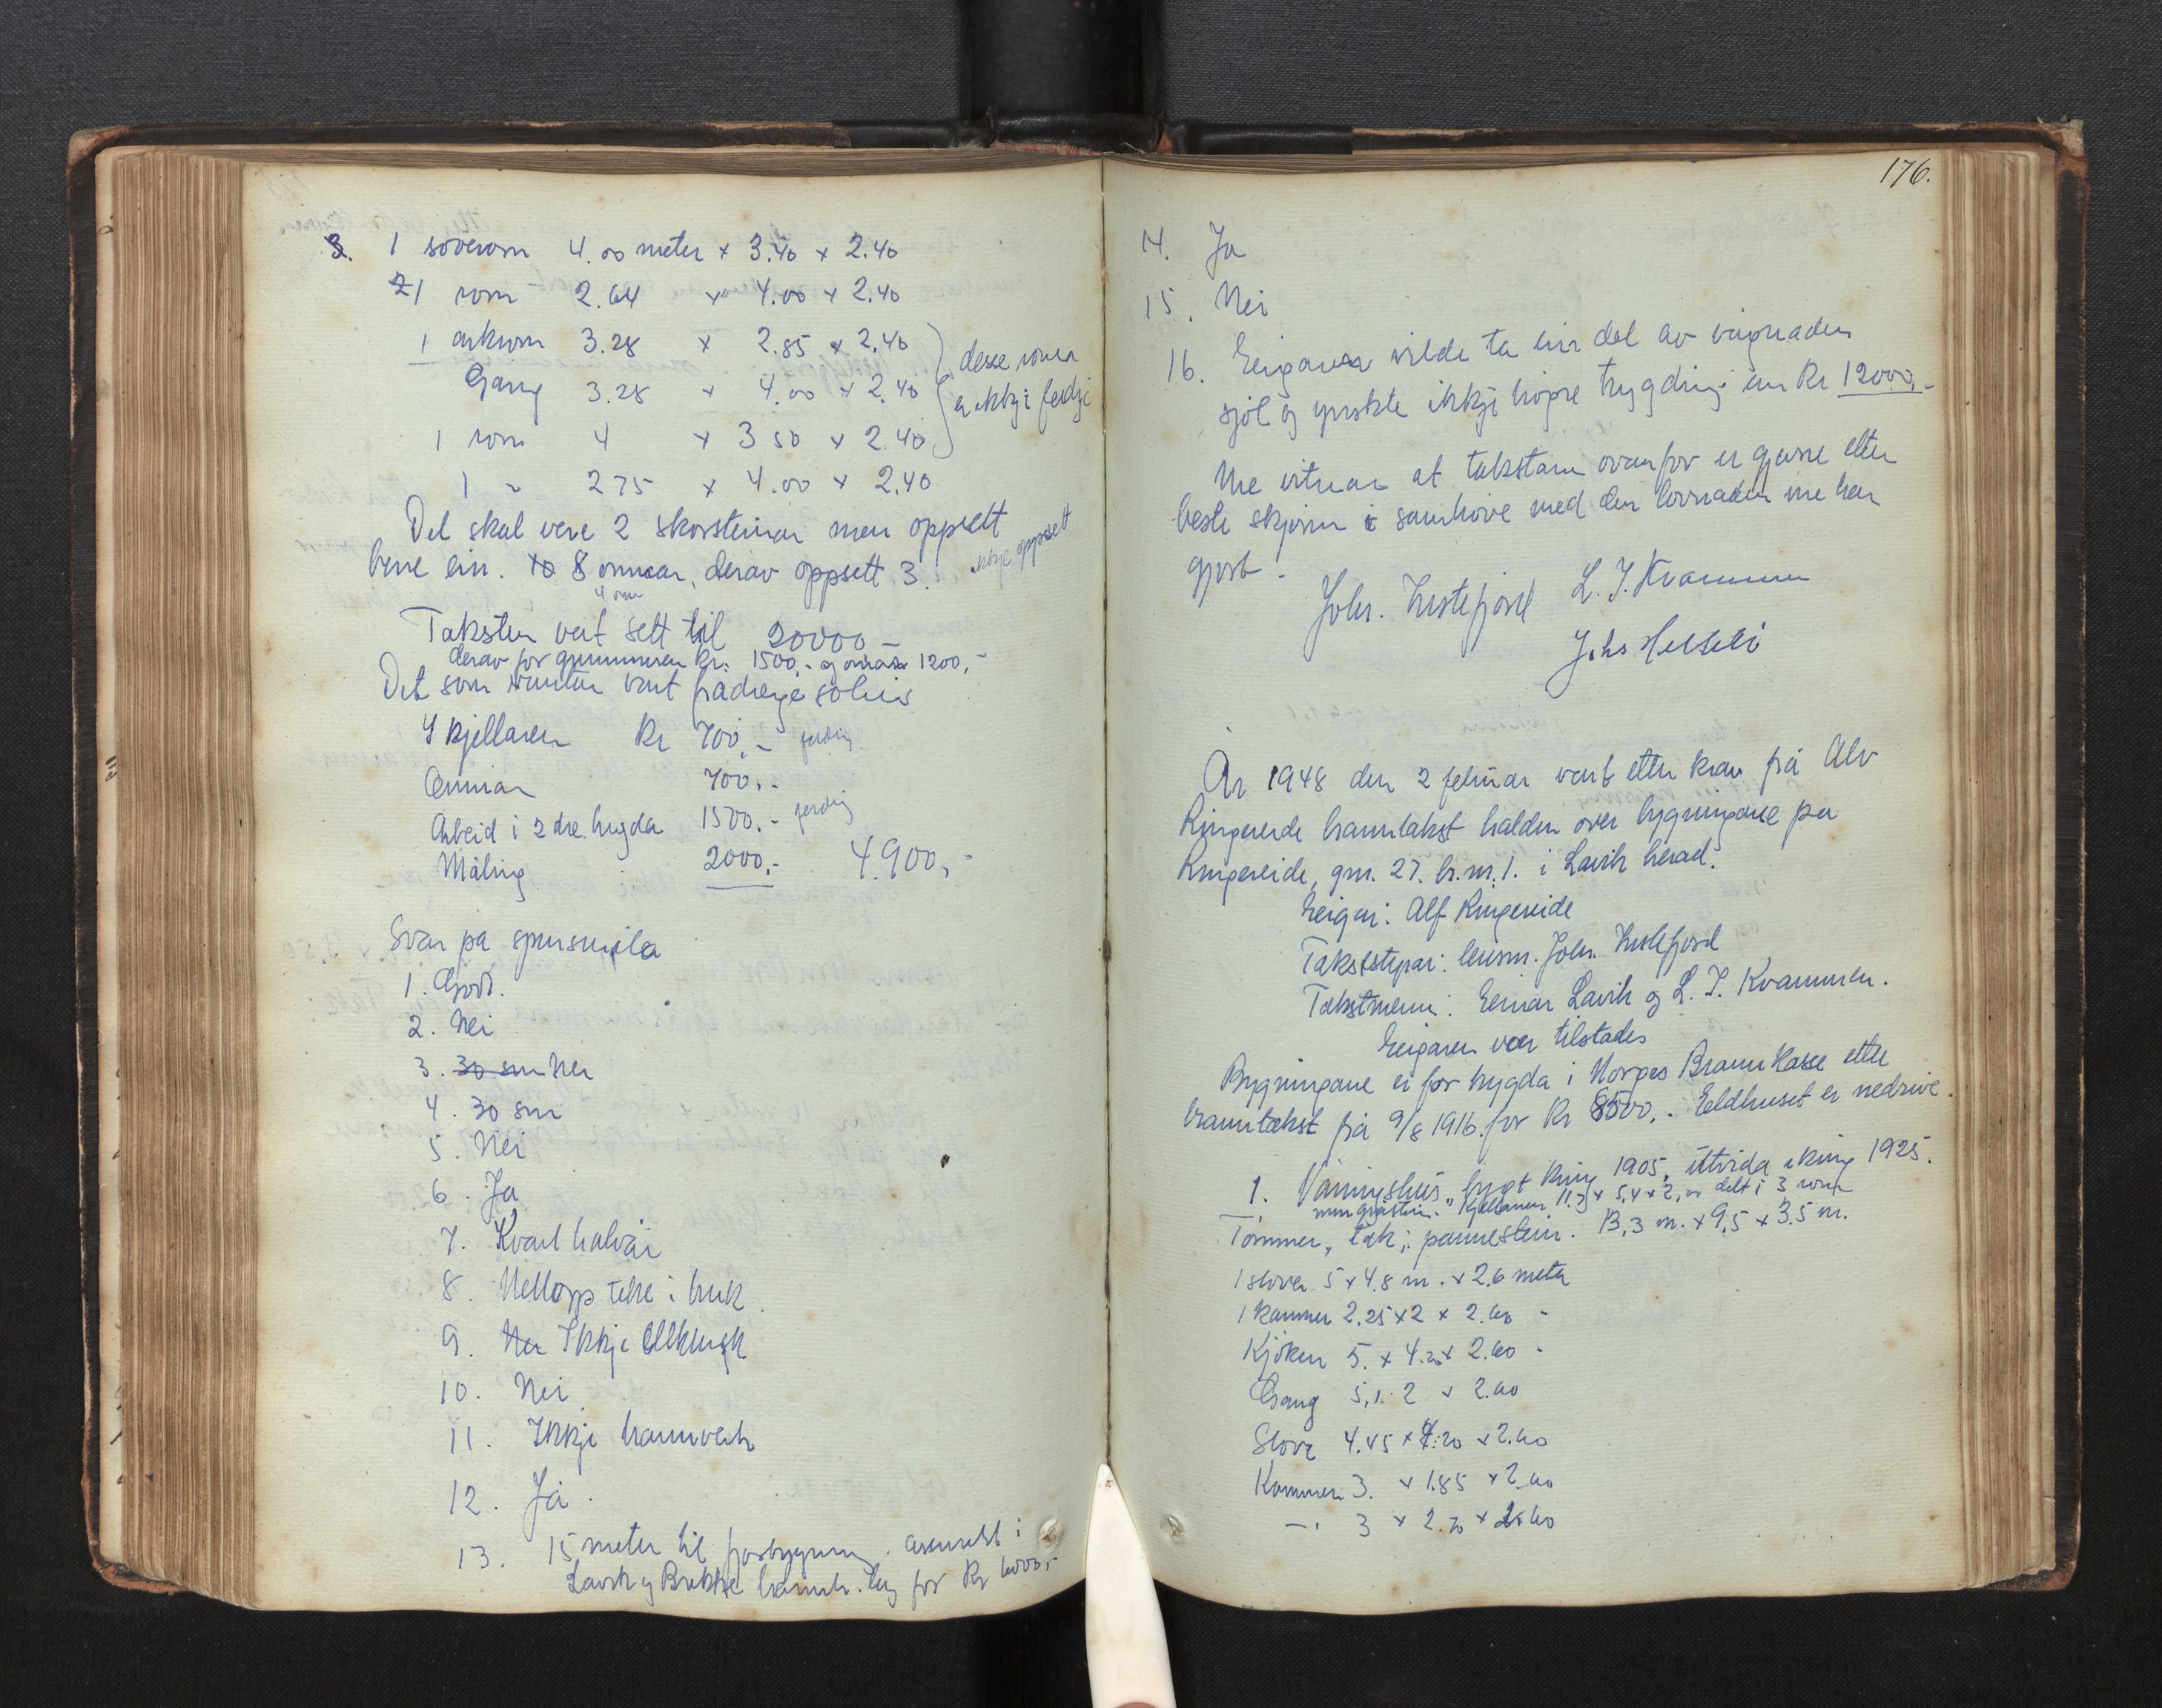 3. 1 soverom 4.00 meter x 3.40 x 2.40
1 rom 2.64 x 4.00 x 2.40
1 arkrom 3.28 x 2.85 x 2.40
Gang 3.28 x 4.00 x 2.40
desse romer
er ikkji ferdje
1 rom 4 x 3 50 x 2.40
1 " 275 x 4.00 x 2.40
Det skal vere 2 skorsteinar men oppsett
berre ein. 8 omnar, derav oppsett 3. oppsett
4 omn
Taksten vert sett til 20000 -
derav for grunnmuren kr. 1500,- og 1200,-
Det som vantar vart
I kjellaren Kr 700,- ferdig
Omnar 700,-
Arbeid i 2dre høgda 1500,- ferdig
Måling 2000,- 4.900,-
Svar på spursmåla
1. Godt.
2. Nei
3. 30 sm Nei
4. 30 sm
5. Nei
6. Ja
7. Kvart halvår
8. teke i bruk
9. Nei Ikkje
10. Nei
11. Ikkje brannverk
12. Ja.
13. 15 meter til i
Lavik og Brekke for Kr 6000,-
176.
14. Ja
15. Nei
16. Eigaren vilde ta ein del av vågnaden
sjøl og ynskte ikkje høgre trygding enn Kr 12000,-
Me vitnar at takstane ovanfor er gjevne etter
beste skjønn i samhøve med den lovnaden me har
gjort.
Johs. Hestefjord L. I. Kvammen
Johs
År 1948 den 2 februar vart etter krav frå Alv
Ringereide branntakst halden over bygningane på
Ringereide, gnr. 27. br.nr. 1. i Lavik herad.
Eigar: Alf Ringereide
Takststyrar: lensm. Johs. Hestefjord
Takstmenn: Einar Lavik og L. I. Kvammen.
Eigaren var tilstades
Bygningane er før trygda i Norges Brannkasse etter
branntakst frå 9/8 1916. for Kr 8500,-. Eldhuset er nedrive.
1. Våningshus, bygt kring 1905, utvida ikring 1925.
mur gråstein. Kjellaren 11.3 x 5,4 x 2, er delt i 3 rom
Tømmer, tak: pannestein. 13,3 m. x 9,5 x 3.5 m.
1 stova 5 x 4.8 m. x 2.6 meter
1 kammer 2.25 x 2 x 2.60 -
Kjøken 5. x 4.20 x 2.60 -
Gang 5,1. 2 x 2.60
Stova 4.45 x 4.20 x 2.60
Kammer 3. x 1.85 x 2.60
-" 3 x 2.70 x 2.60